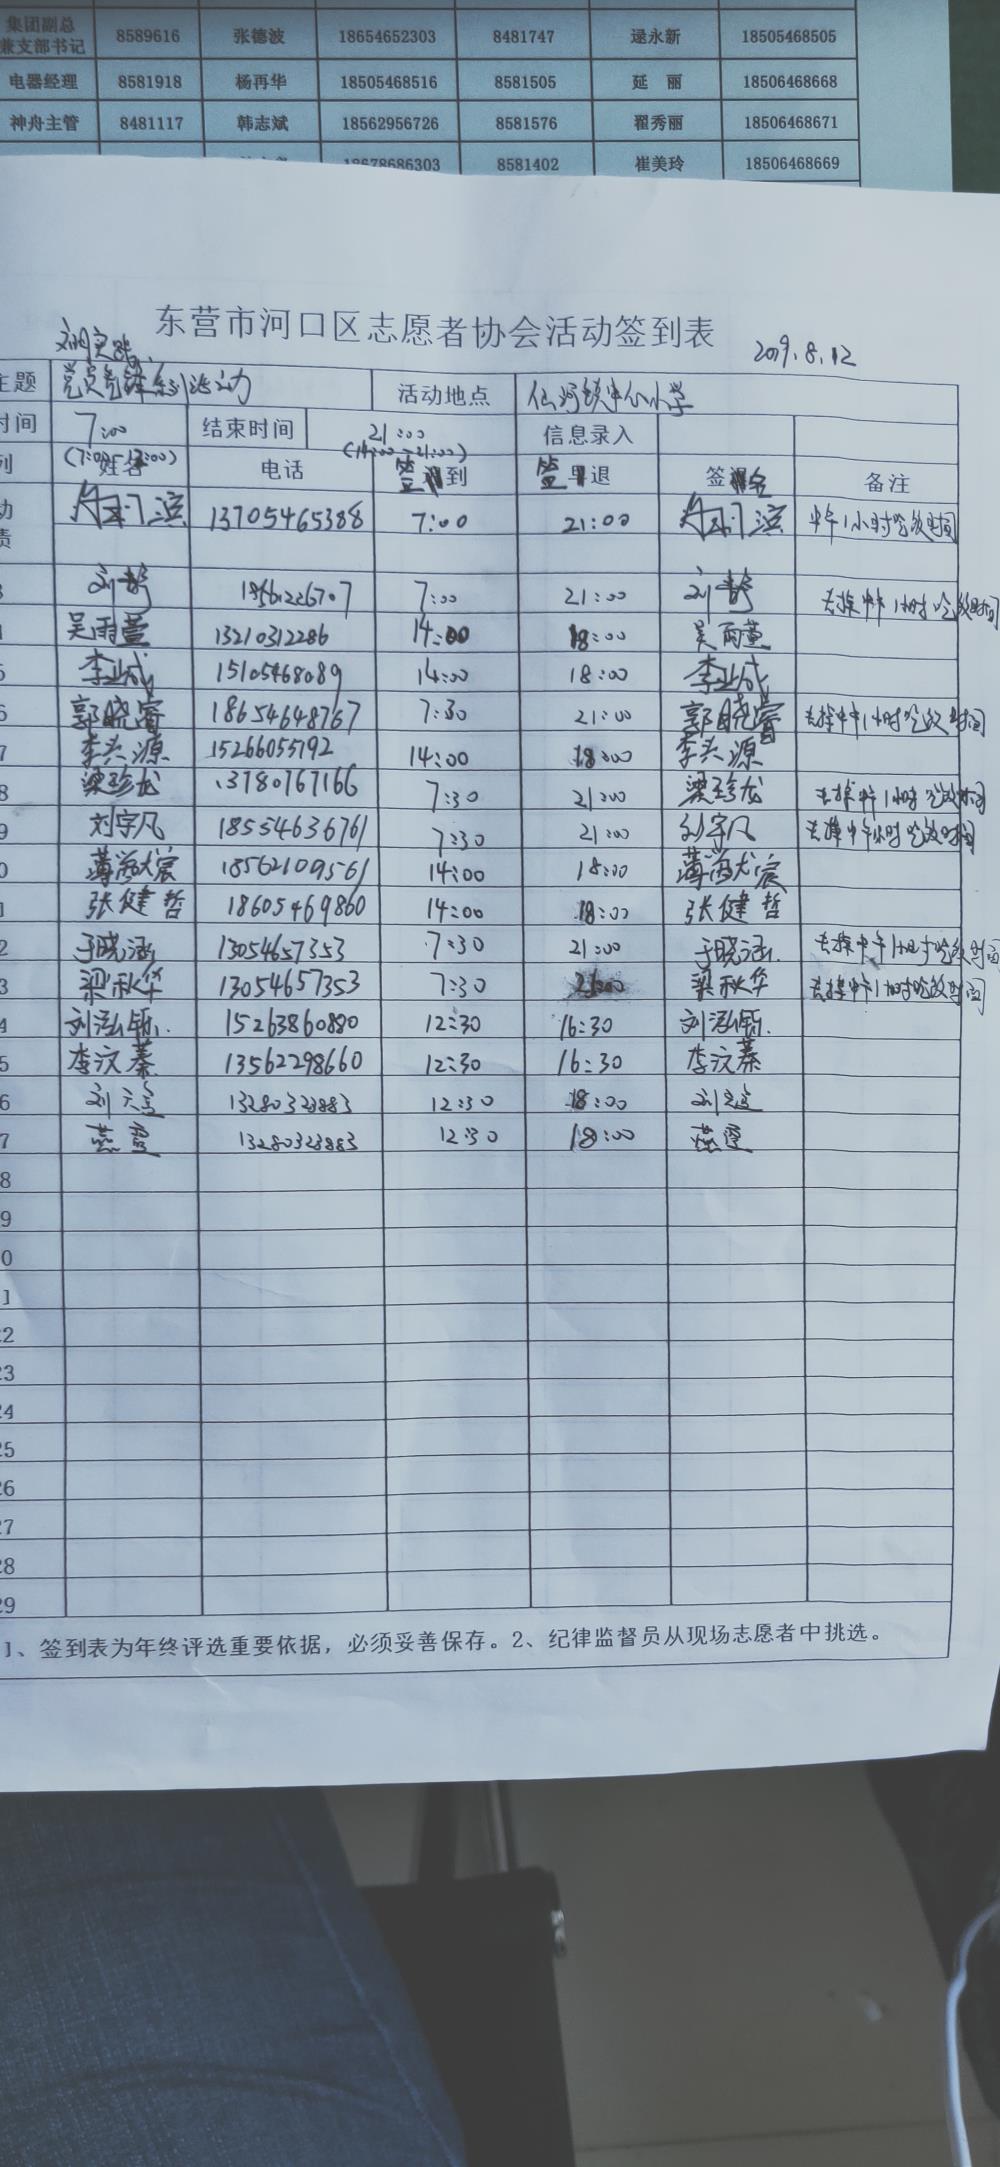 集团副总
兼支部书记 8589616 张德波 18654652303 8481747 逯永新 18505468505
电器经理 8581918 杨再华 18505468516 8581505 延 丽 18506468668
神舟主管 8481117 韩志斌 18562956726 8581576 翟秀丽 18506468671
18678686303 8581402 崔美玲 18506468669
东营市河口区志愿者协会活动签到表
2019.8.12
主题 活动地点 仙河镇中心小学
时间 7:00 结束时间 21:00 信息录入
(14:00-21:00)
列 (7:00-12:00) 姓名 电话 签到 签退 签名 备注
动 13705465388 7:00 21:00 中午1小时吃饭时间
责
刘梦 18561226707 7:00 21:00 刘梦 去掉中午1小时吃饭时间
吴雨萱 13210312286 14:00 18:00 吴雨萱
5 李业成 15105468089 14:00 18:00 李业成
6 郭晓睿 18654648767 7:30 21:00 郭晓睿 去掉中午1小时吃饭时间
7 李兴源 15266055792 14:00 18:00 李兴源
8 梁珍龙 13780767166 7:30 21:00 梁珍龙 去掉中午1小时吃饭时间
9 刘宇凡 18554636761 7:30 21:00 刘宇凡 去掉中午1小时吃饭时间
0 18562109561 14:00 18:00
1 张健哲 18605469860 14:00 18:00 张健哲
2 于晓涵 13054657353 7:30 21:00 于晓涵 去掉中午1小时吃饭时间
3 梁秋华 13054657353 7:30 21:00 梁秋华 去掉中午1小时吃饭时间
4 刘泓铄 15263860880 12:30 16:30 刘泓铄
5 李汶蓁 13562298660 12:30 16:30 李汶蓁
6 13280323883 12:30 18:00
7 燕霞 13280323883 12:30 18:00 燕霞
8
9
0
1
22
23
24
25
26
27
28
29
1、签到表为年终评选重要依据，必须妥善保存。2、纪律监督员从现场志愿者中挑选。